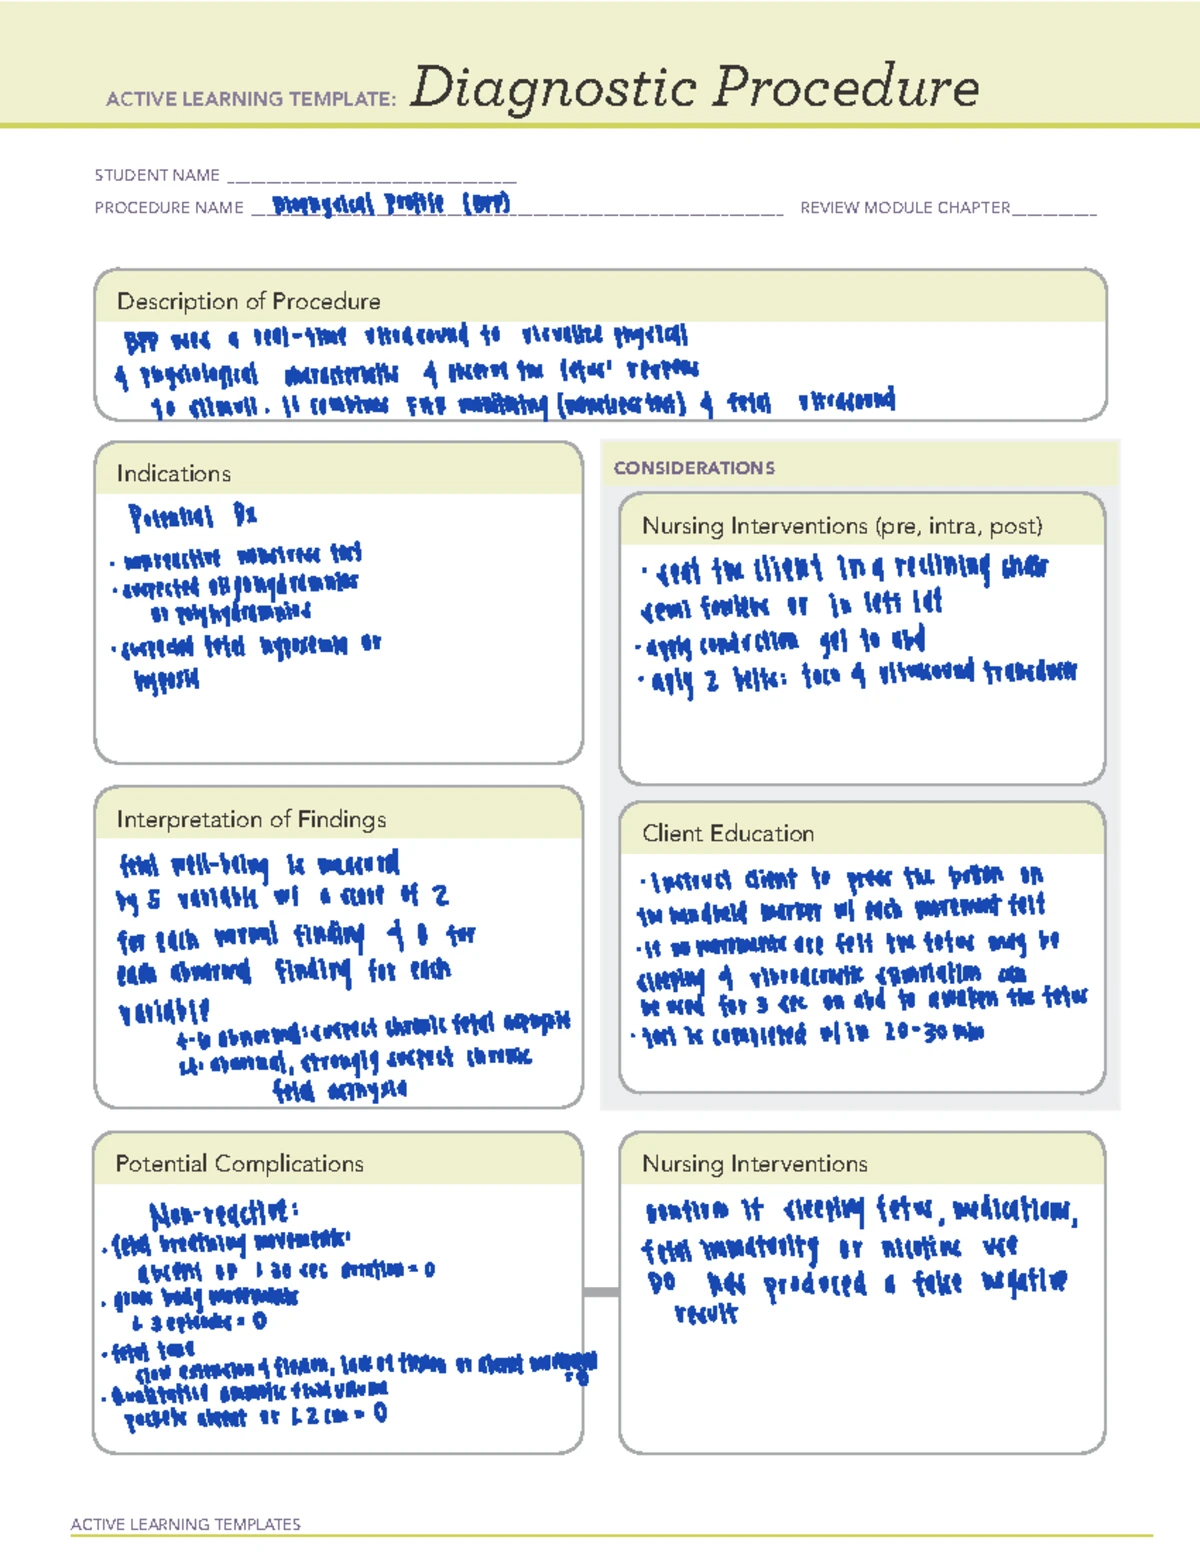 ACTIVE LEARNING TEMPLATE: Diagnostic Procedure
STUDENT NAME
PROCEDURE NAME Biophysical Profile (BPP)
REVIEW MODULE CHAPTER
Description of Procedure
BPP uses a real-time ultrasound to visualize physical
& physiological characteristics & observe the fetus' response
to stimuli. It combines FHR monitoring (nonstress test) & fetal ultrasound
Indications
Potential Dx
· nonreactive nonstress test
· suspected oligohydramnios
or polyhydramnios
· suspected fetal hypoxemia or
hypoxia
CONSIDERATIONS
Nursing Interventions (pre, intra, post)
· seat the client in a reclining chair
semi fowlers or in left lat
· apply conduction gel to abd
· aply 2 belts: toco & ultrasound transducer
Interpretation of Findings
fetal well-being is measured
by 5 variable w/ a score of 2
for each normal finding & 0 for
each abnormal finding for each
variable
4-6 abnormal: suspect chronic fetal
<4: abnormal, strongly suspect chronic
fetal
Client Education
· instruct client to press the button on
the handheld marker w/ each movement felt
· if no movements are felt the fetus may be
sleeping & vibroacoustic stimulation can
be used for 3 sec on abd to awaken the fetus
· test is completed w/in 20-30 min
Potential Complications
Non-reactive:
· fetal breathing movements:
absent or < 30 sec duration = 0
· gross body movements
< 3 episodes = 0
· fetal tone
slow extension & flexion, lack of flexion or absent movement
= 0
· Qualitative amniotic fluid volume
pockets absent or < 2 cm = 0
Nursing Interventions
confirm if sleeping fetus, medications,
fetal immaturity or nicotine use
DO has produced a false negative
result
ACTIVE LEARNING TEMPLATES